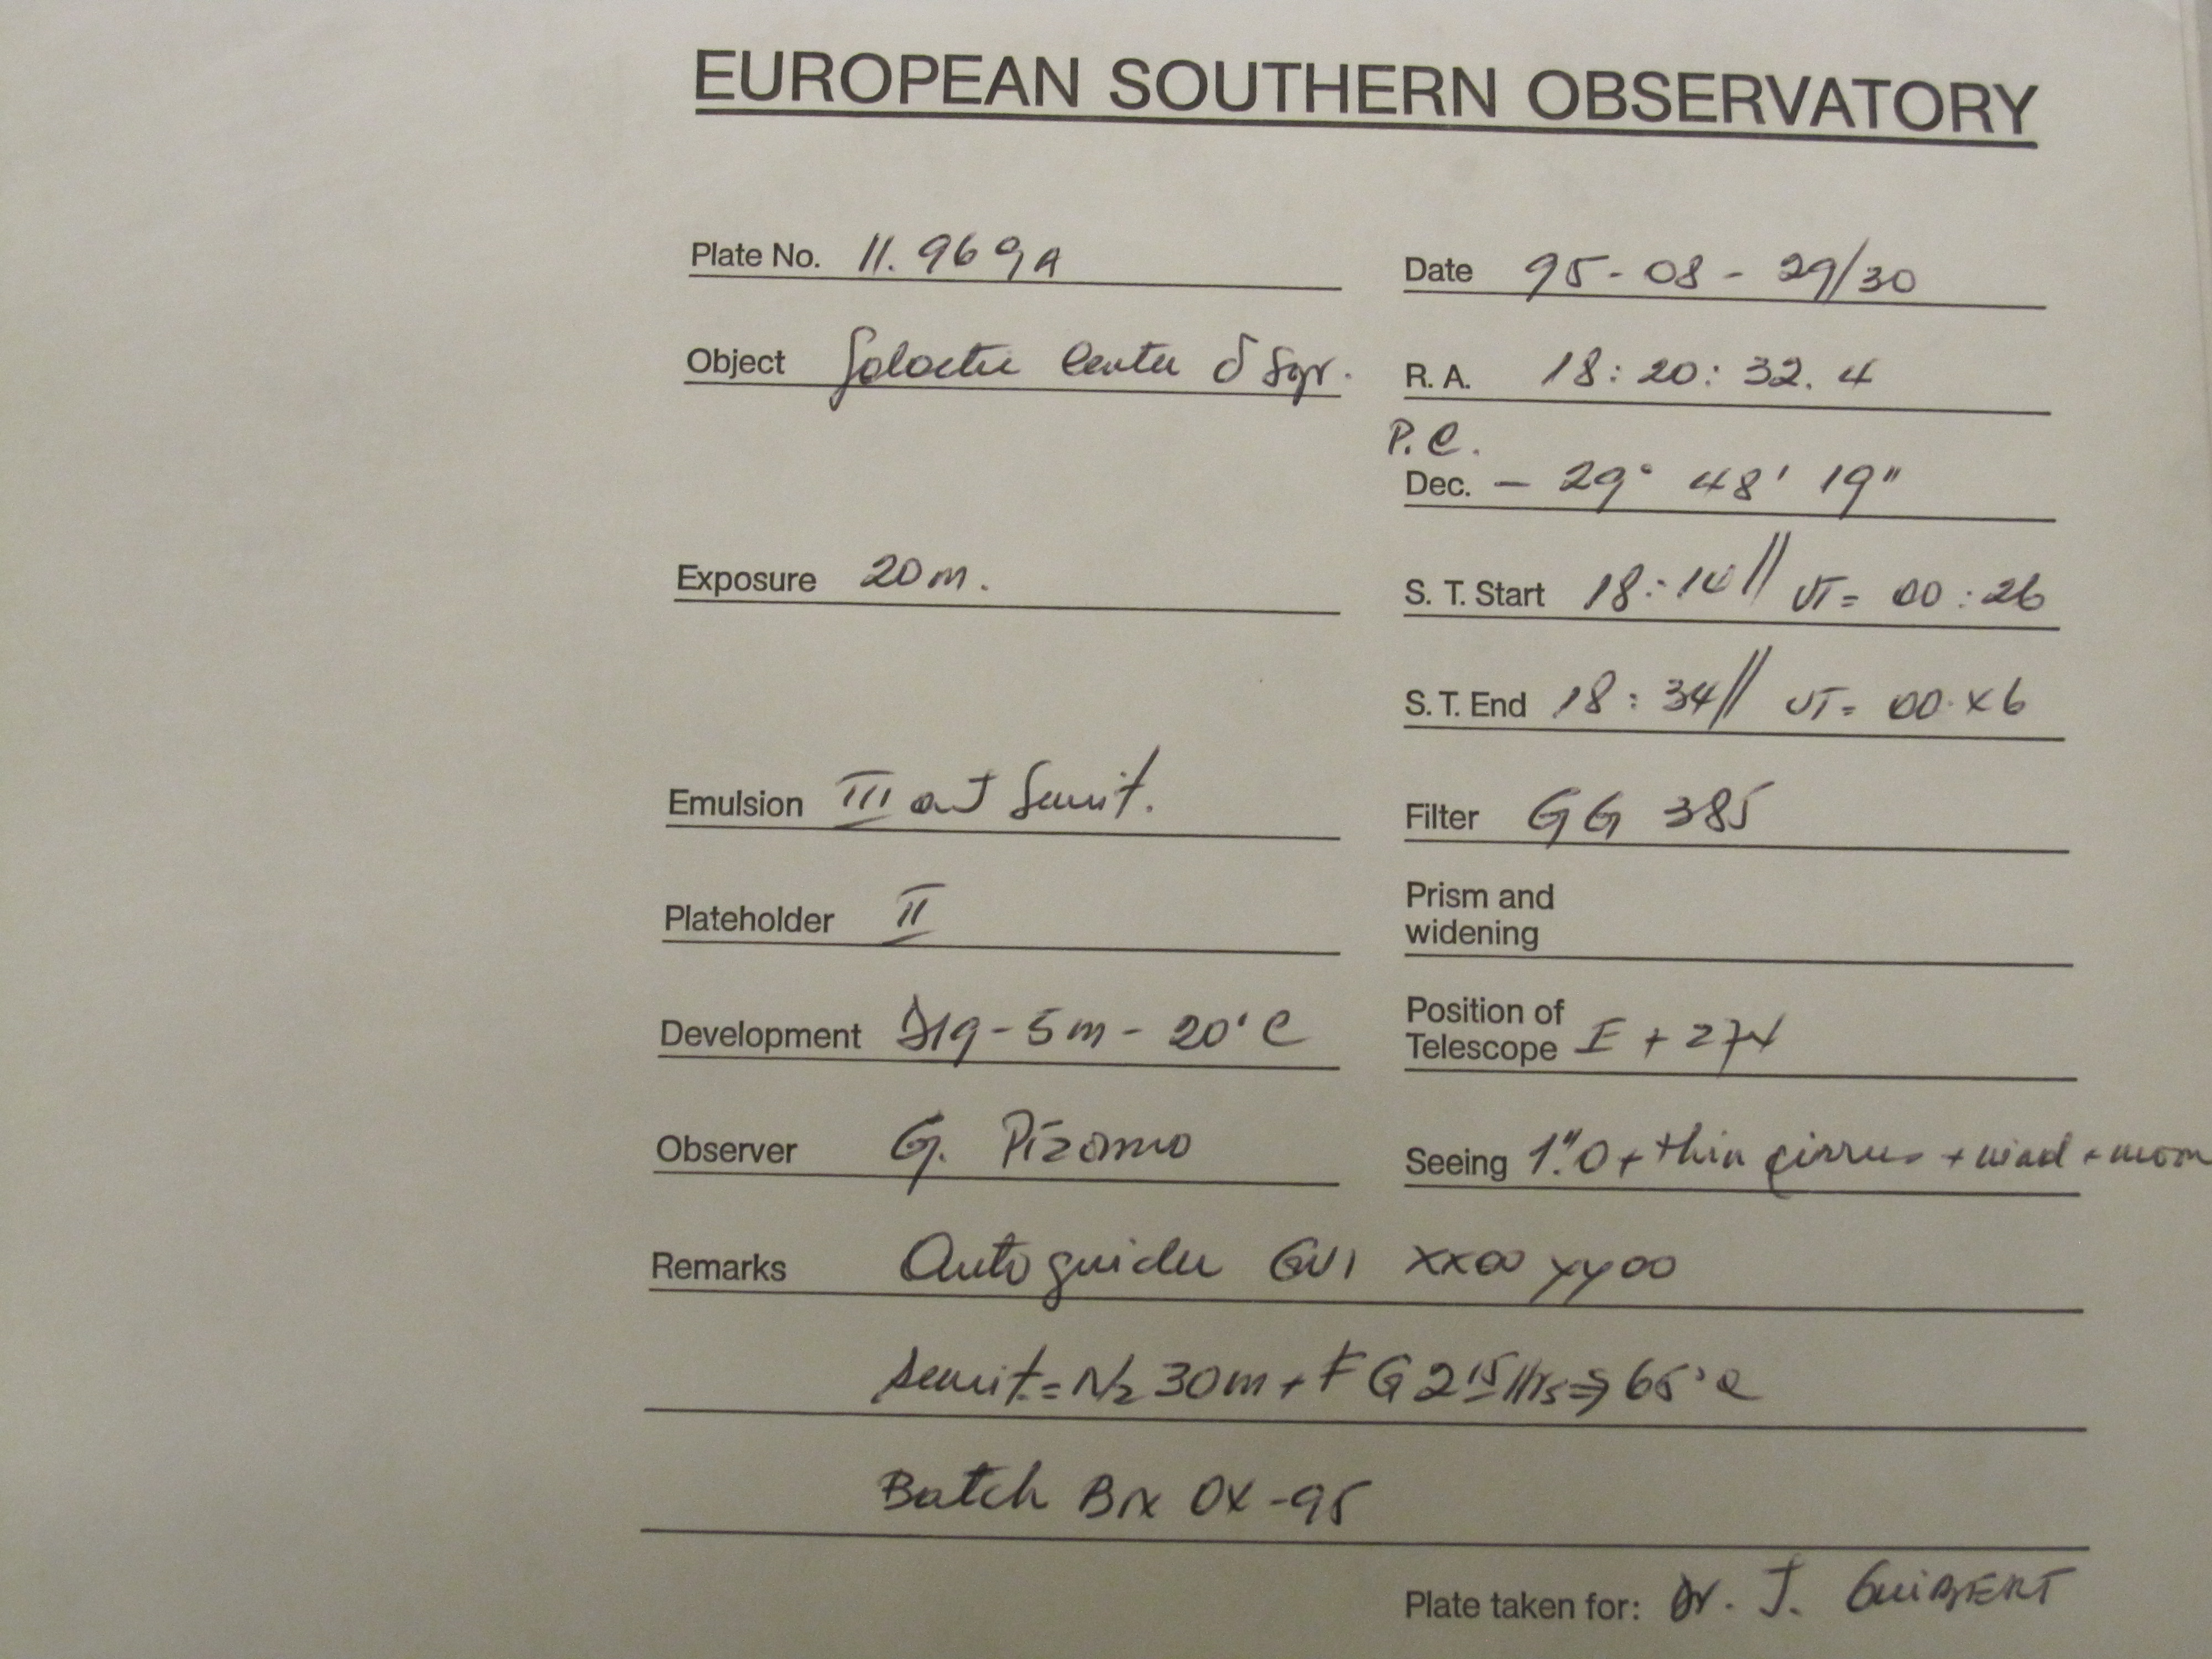 EUROPEAN SOUTHERN OBSERVATORY
Plate No. 11.969A
Date 95-08-29/30
Object Galactic Center δ Sgr.
R. A. 18:20:32.4
P.C.
Dec. - 29° 48' 19"
Exposure 20m.
S. T. Start 18:14// UT= 00:26
S. T. End 18:34// UT=
Emulsion III aJ Sensit.
Filter GG 385
Plateholder II
Prism and
widening
Development D19-5m-20°C
Position of
Telescope
Observer G. Pizarro
Seeing 1".0 + thin cirrus + wind + moon
Remarks Autoguider GV1 XX00 YY00
Sensit.=N2 30m + FG 2 15 Hrs 65°C
Batch
Plate taken for: Dr. J. GUIBERT